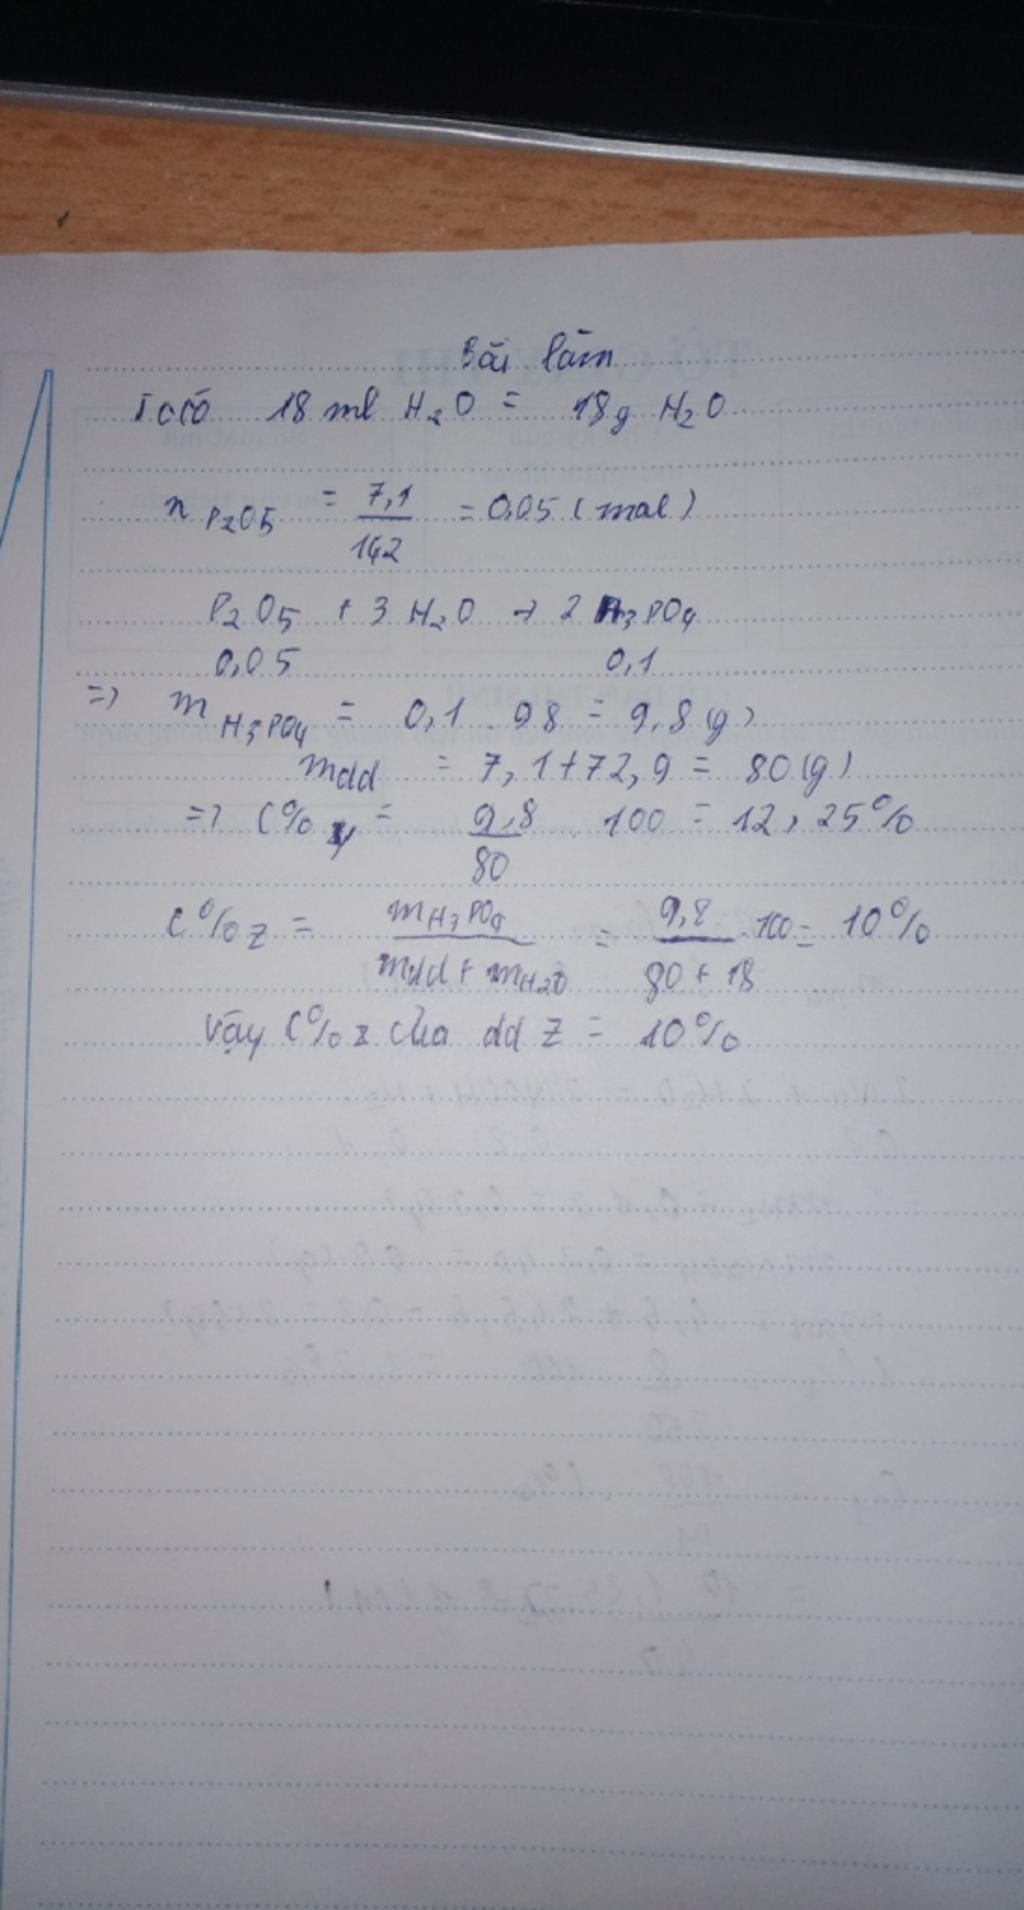 Bài làm
Ta có 18 ml H2O = 18g H2O
n P2O5 = 7,1 / 142 = 0,05 (mol)
P2O5 + 3 H2O → 2 H3PO4
0,05 0,1
=> m H3PO4 = 0,1 . 98 = 9,8 (g)
mdd = 7,1 + 72,9 = 80 (g)
=> C% y = 9,8 / 80 . 100 = 12,25%
C% z = mH3PO4 / mdd + mH2O = 9,8 / 80 + 18 .100 = 10%
Vậy C% z của dd z = 10%